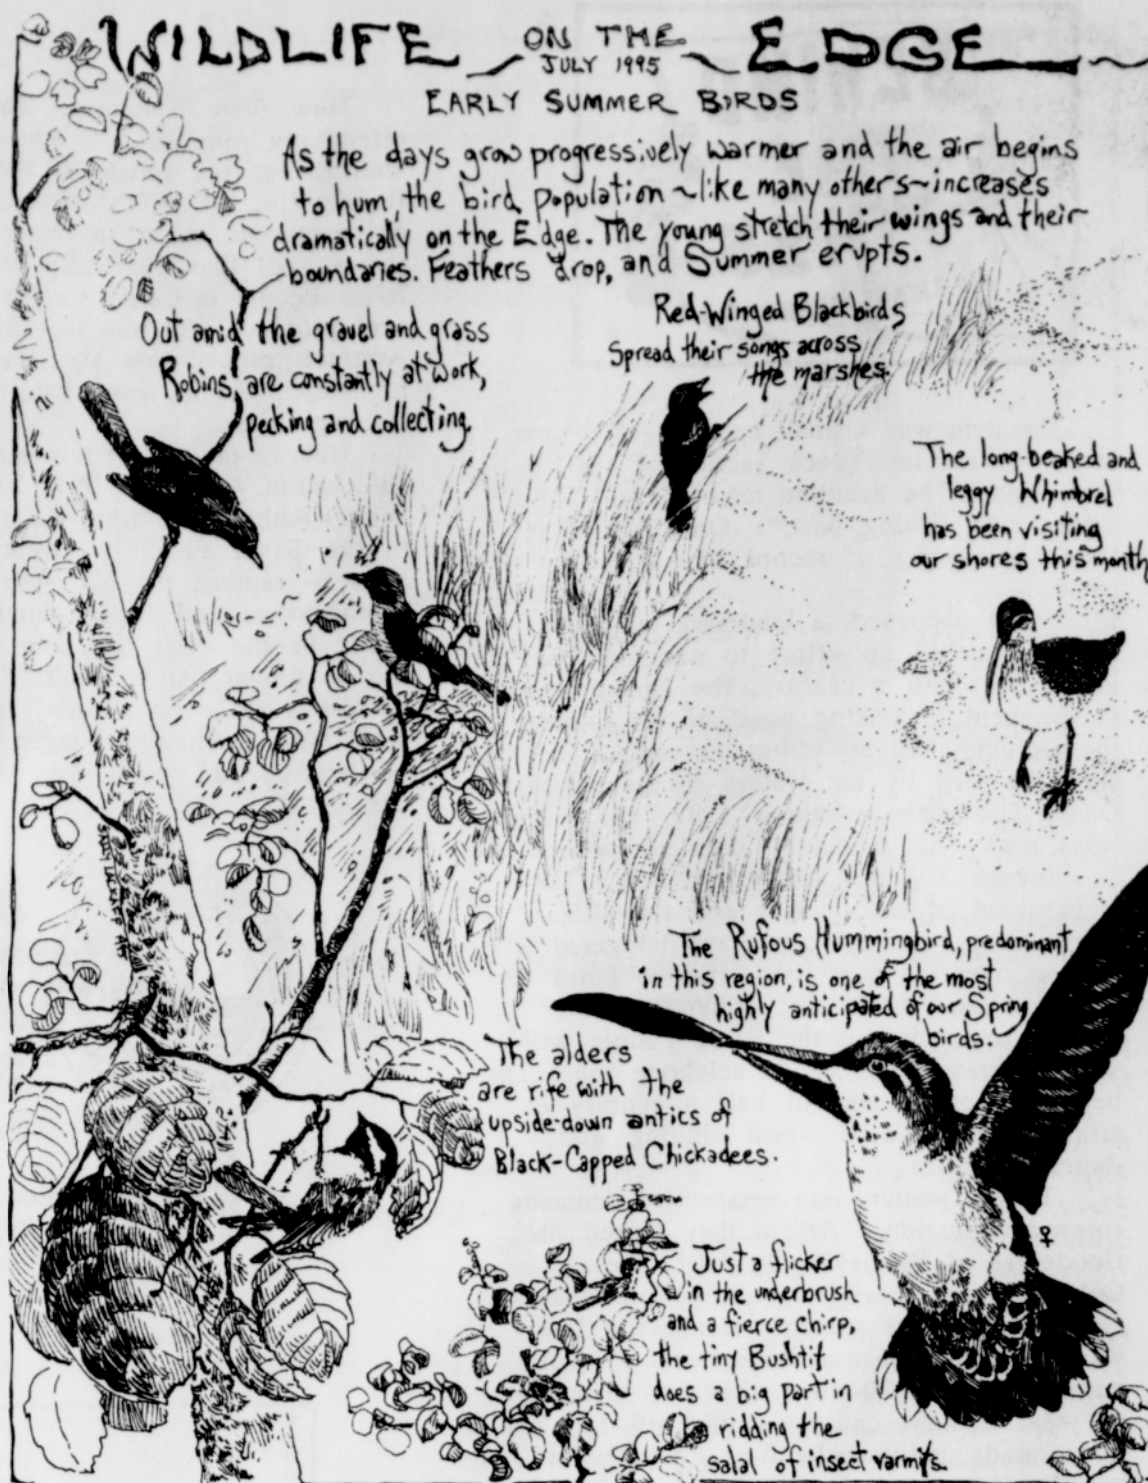 WILDLIFE ON THE EDGE
JULY 1995
EARLY SUMMER BIRDS
As the days grow progressively warmer and the air begins
to hum, the bird population ~like many others~ increases
dramatically on the Edge. The young stretch their wings and their
boundaries. Feathers drop, and Summer erupts.
Out amid the gravel and grass
Robins are constantly at work,
pecking and collecting.
Red-Winged Blackbirds
Spread their songs across
the marshes.
The long-beaked and
leggy Whimbrel
has been visiting
our shores this month
The Rufous Hummingbird, predominant
in this region, is one of the most
highly anticipated of our Spring
birds.
The alders
are rife with the
upside-down antics of
Black-Capped Chickadees.
♀
Just a flicker
in the underbrush
and a fierce chirp,
the tiny Bushtit
does a big part in
ridding the
salal of insect varmits.